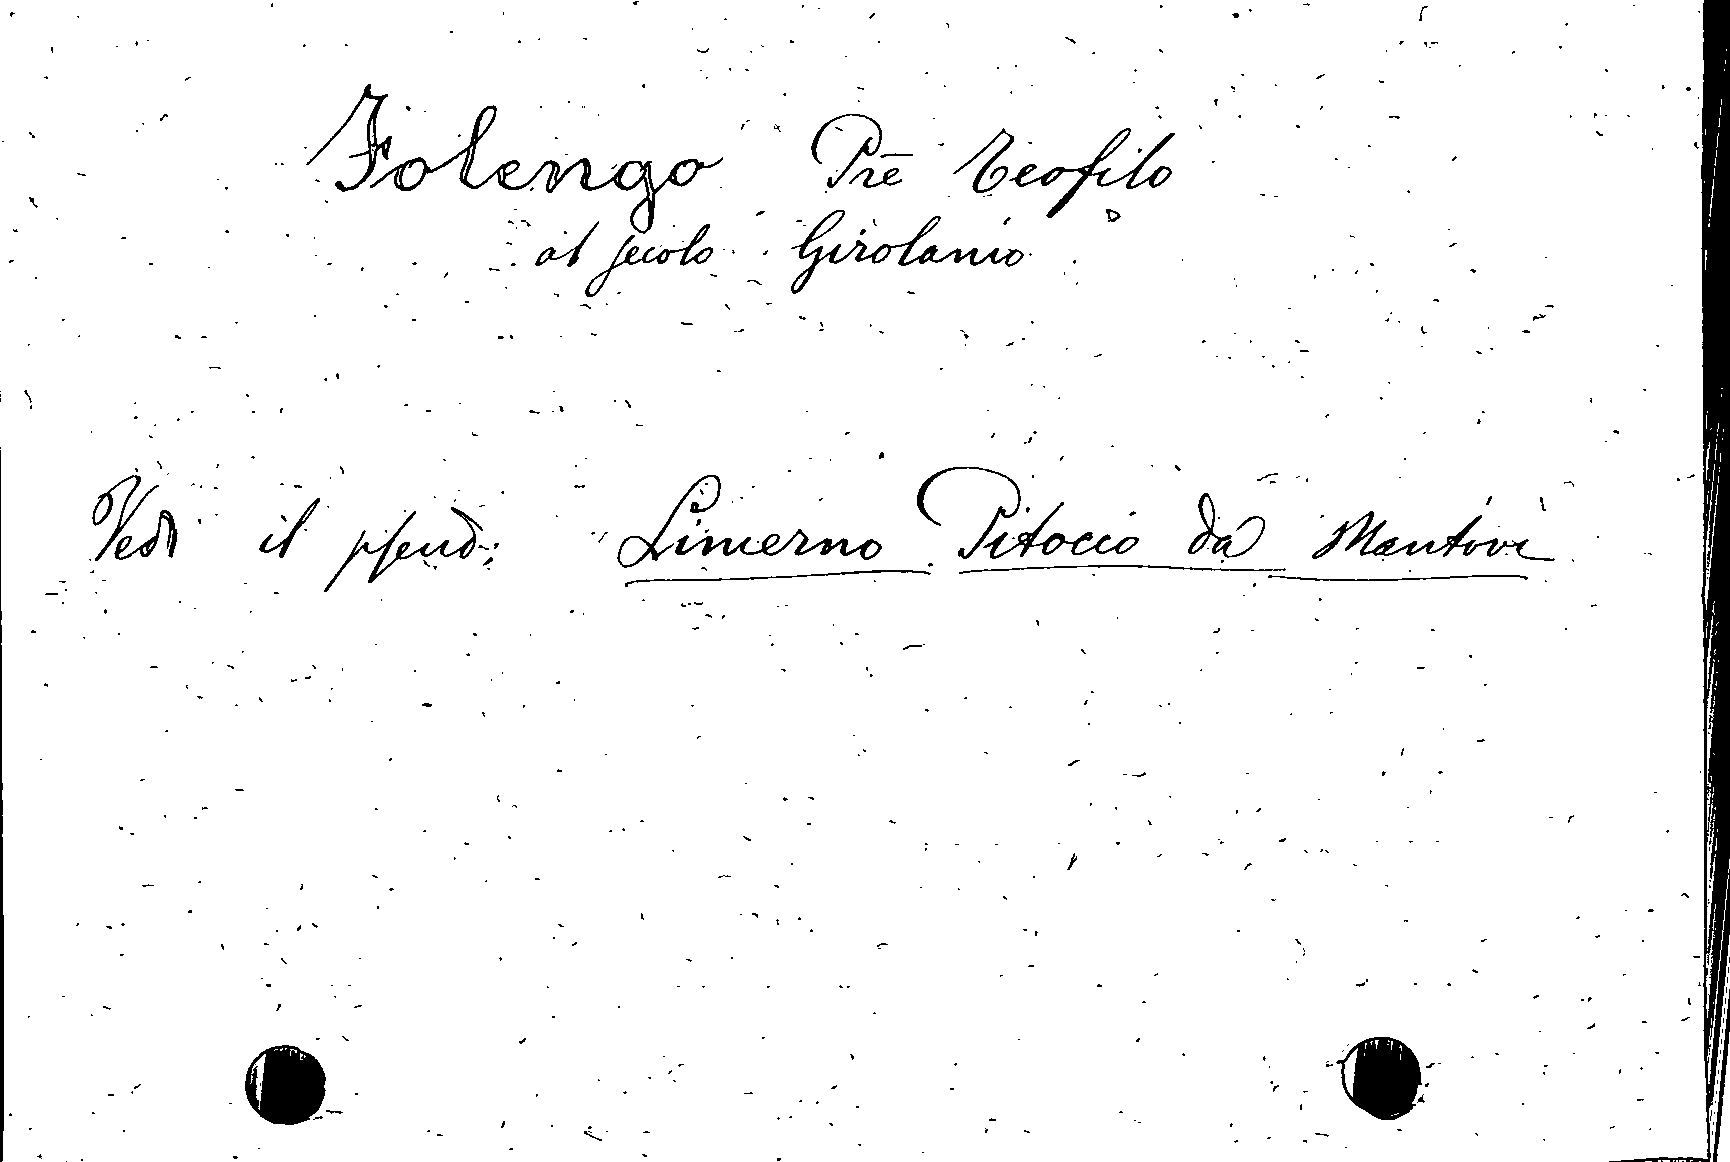 Folengo Prē Teofilo
al secolo Girolamo
Vedi il pseud: Limerno Pitocco da Mantova